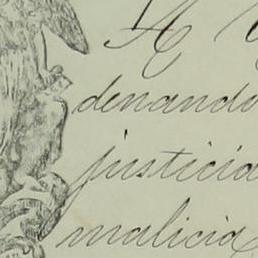 A
denando
justicia
malicia